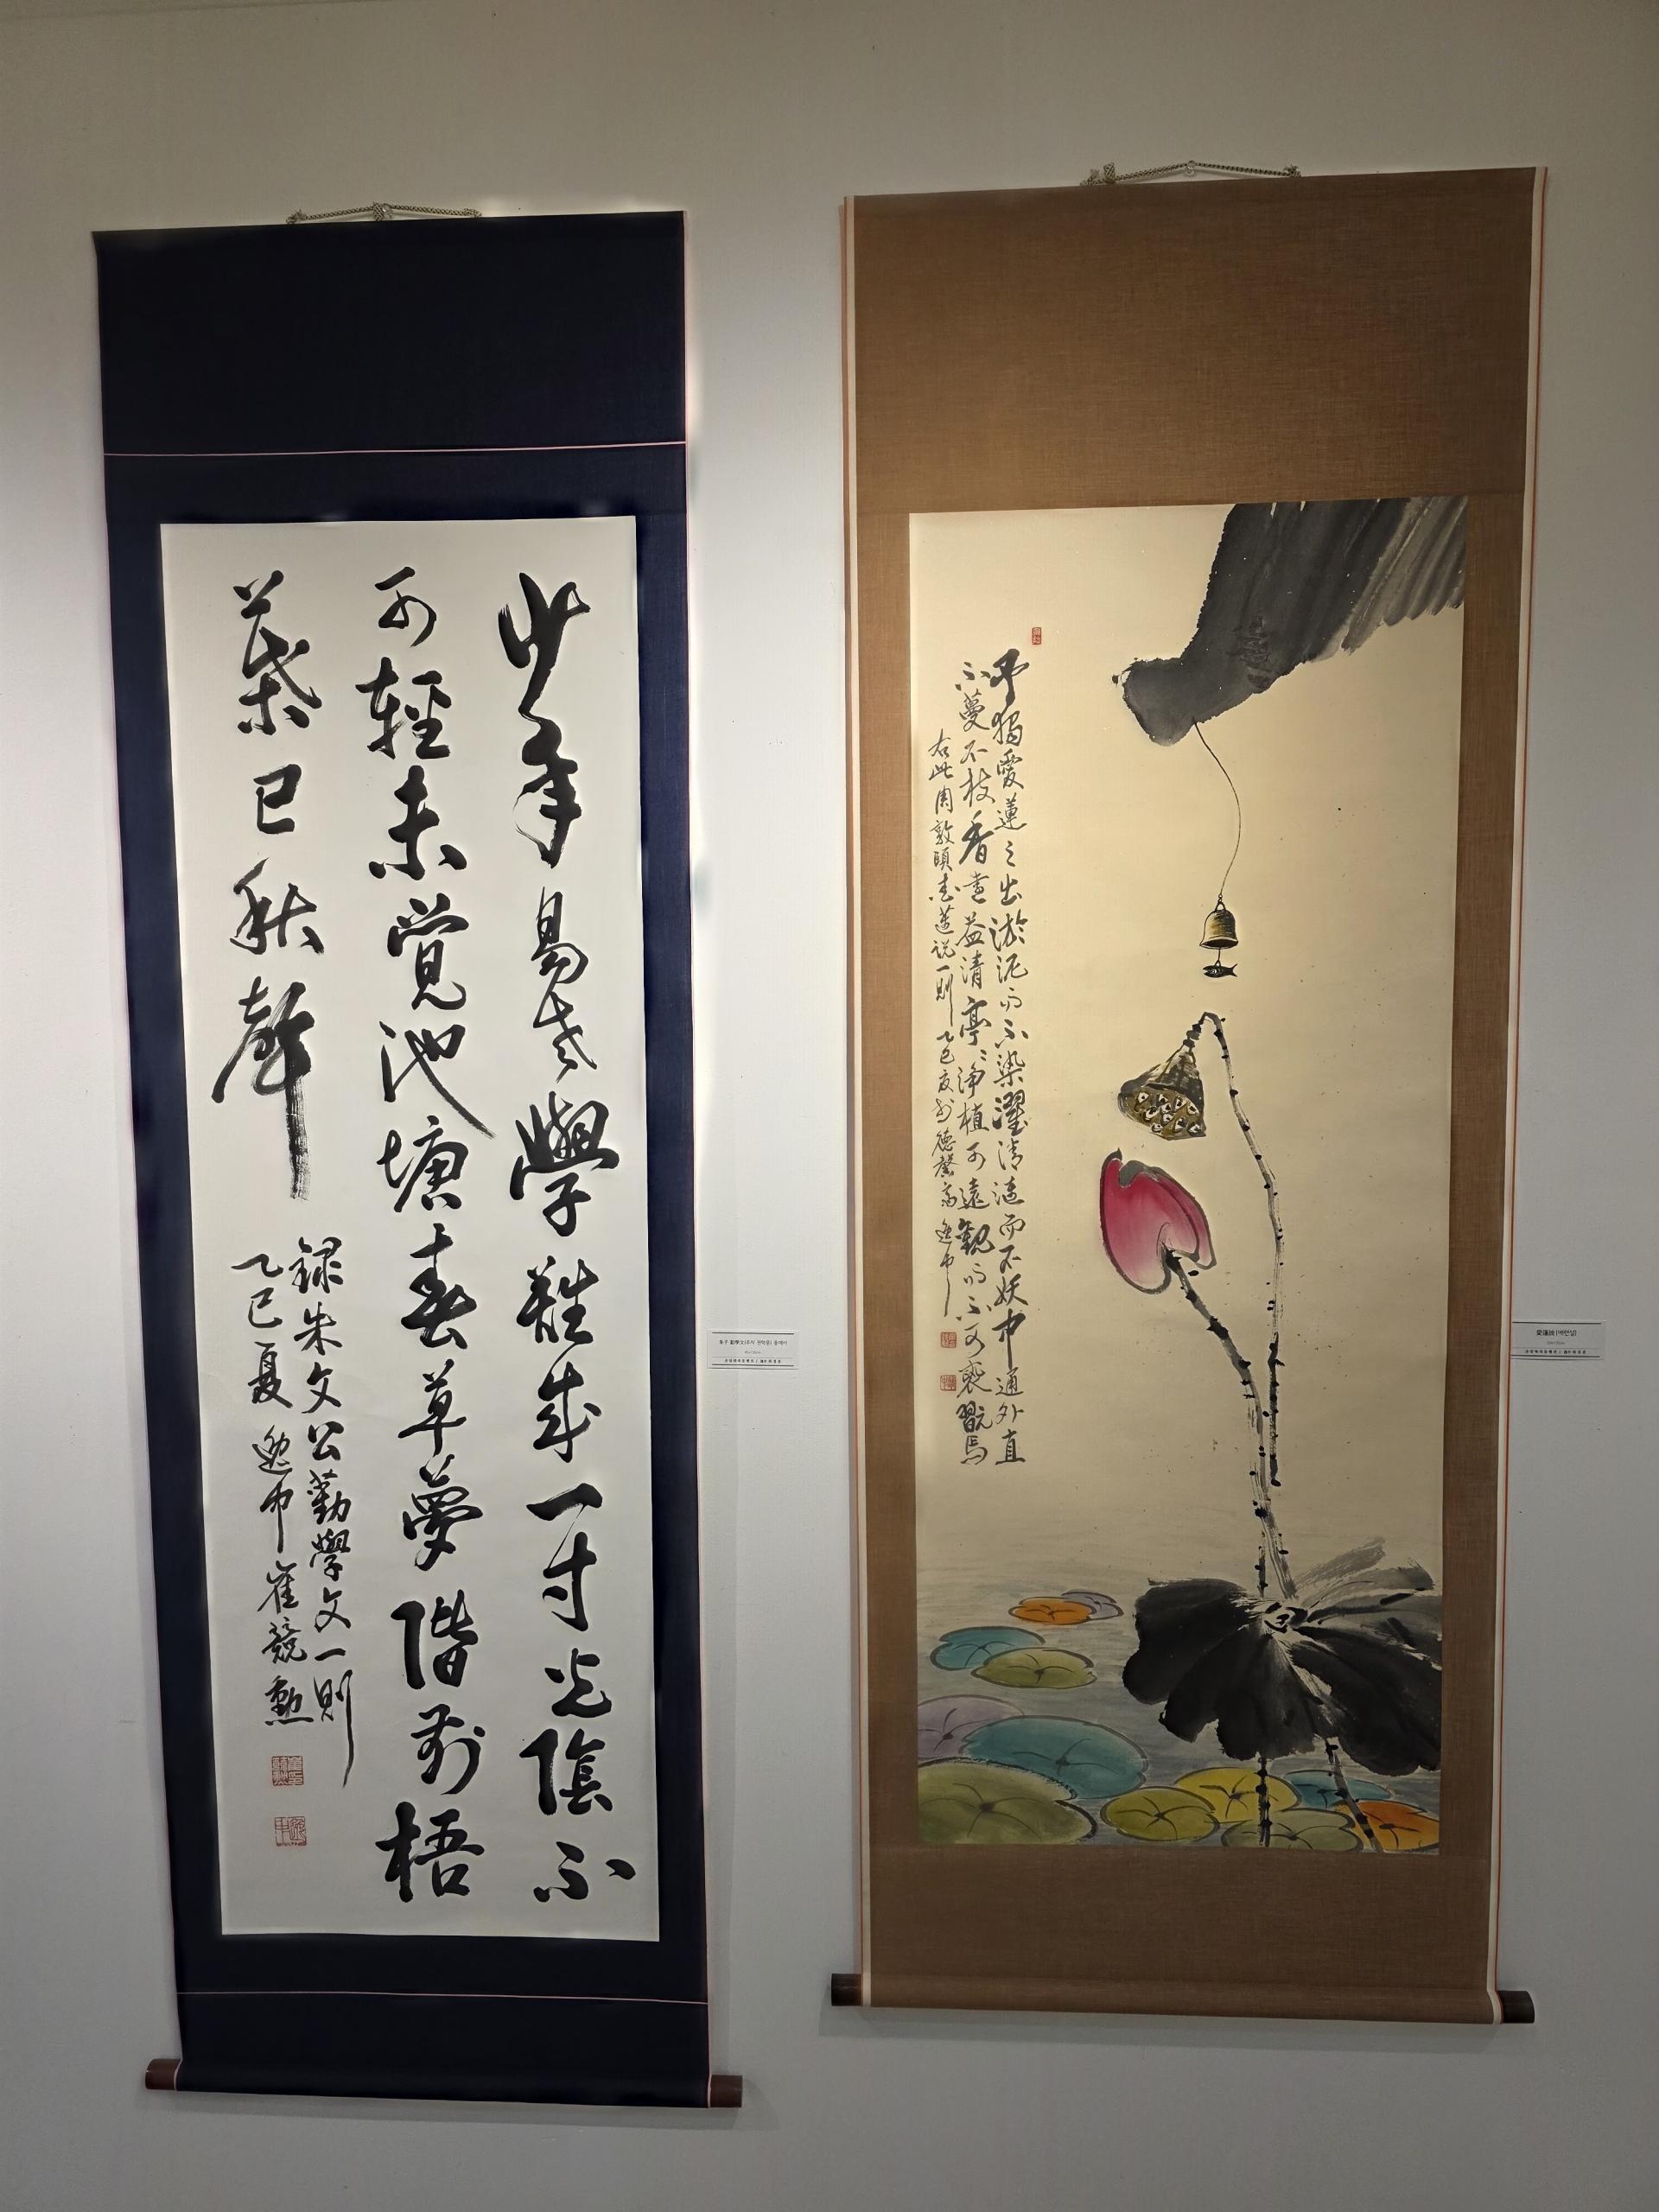 少年易老學難成一寸光陰不
可輕未覺池塘春草夢階前梧
葉已秋聲
録朱文公勸學文一則
乙巳夏 逸中 崔競勳
朱子 勸學文(주자 권학문) 중에서
予獨愛蓮之出淤泥而不染濯清漣而不妖中通外直
不蔓不枝香遠益清亭〻淨植可遠觀而不可褻翫焉
右此周敦頤愛蓮說一則乙巳夏於德馨斎逸中
愛蓮說(애련설)